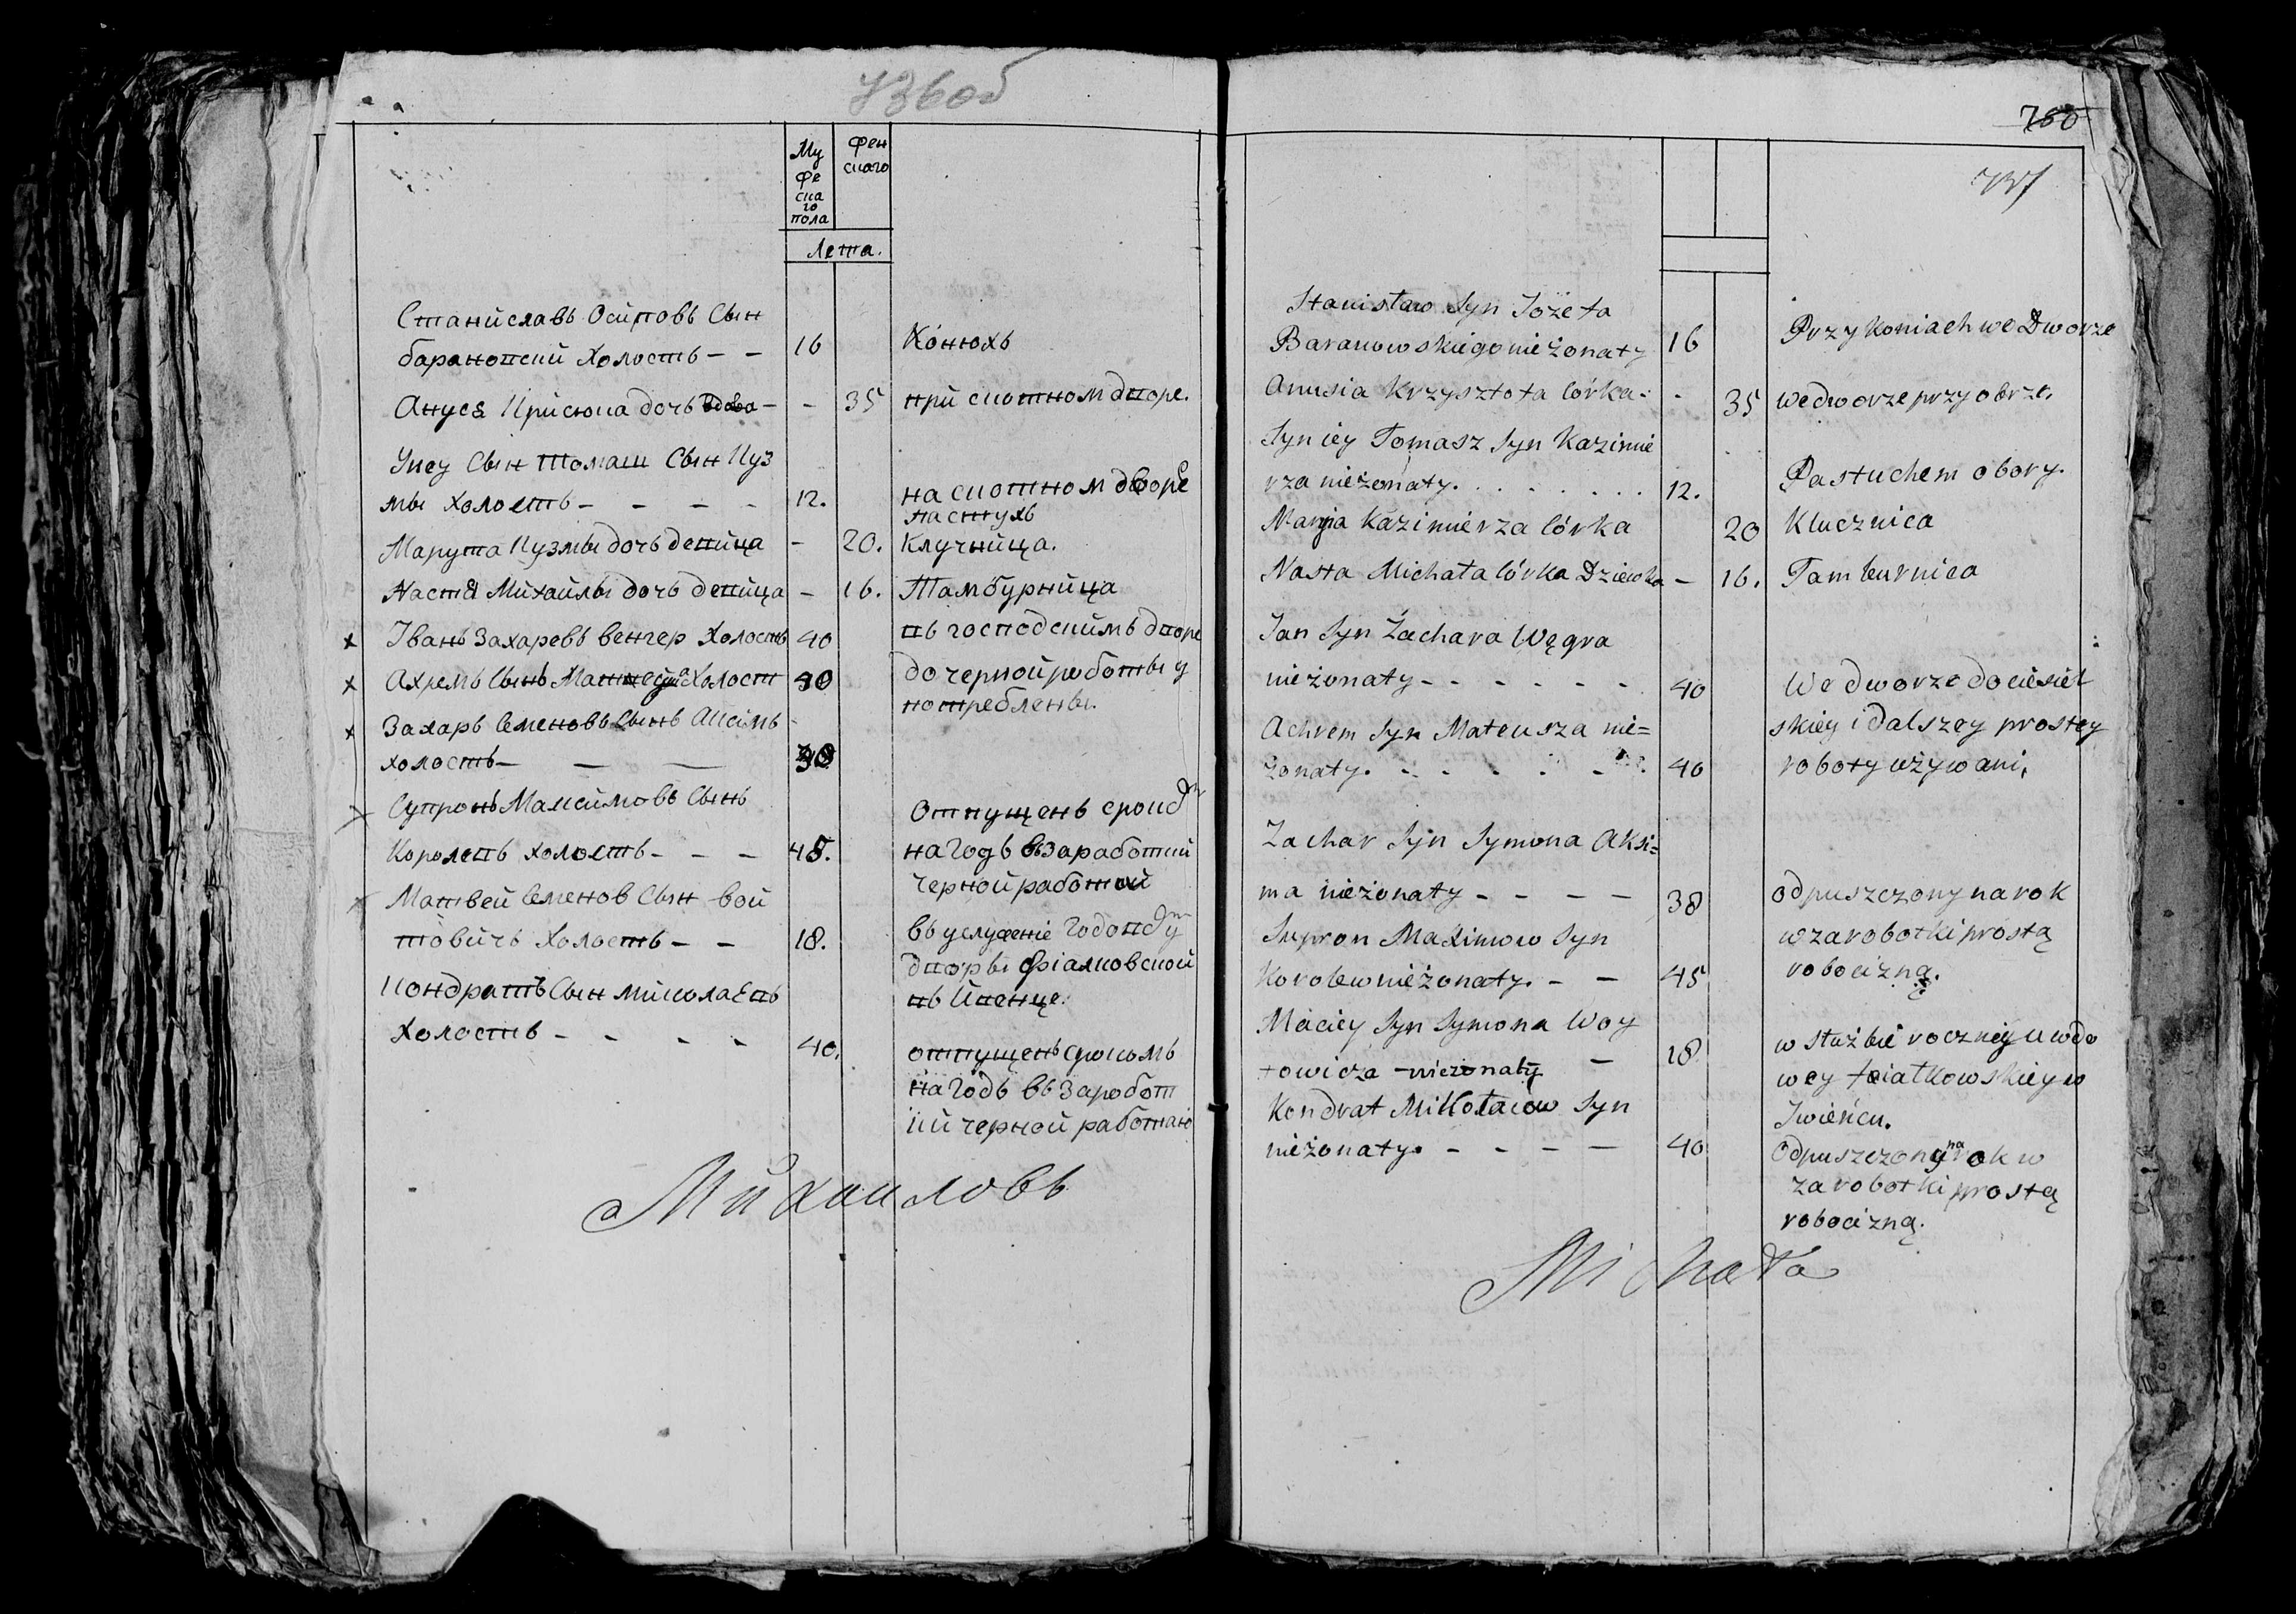 736об
Му
же
ска
го
пола
Жен
скаго
Лета.
Станиславъ Осиповъ Сын
барановский Холостъ – – 16 Конюхъ
Ануся Крисюпа дочь вдова – – 35 при скотном дворе.
У неу Сын Томаш Сын Куз
мы холостъ – – – – 12. на скотном дворе
пастухъ
Марута Кузмы дочь девица – 20. Ключница.
Настя Михайлы дочь девица – 16. Тамбурница
х Іванъ Захаревъ венгер Холостъ 40 въ господскимъ дворе
х Ахремъ Сынъ Холост 40 до черной работы у
потребленъ.
х Захаръ Семеновъ Сынъ Аксимъ
холостъ – – –
х Супронъ Максимовъ Сынъ
Королевъ холостъ – – – 45.
Отпущенъ
на годъ въ заработки
черной работой
х Матвей Семенов Сын вой
товичъ Холостъ – – 18.
въ услужение
дворы Фіалковской
въ Ивенце.
Кондратъ Сын Миколаевъ
Холостъ – – – – 40.
отпущенъ срокомъ
на годъ въ заработ
ки черной работаю
Михаиловъ
760
737
Stanisław Syn Józefa
Baranowskiego nieżonaty 16 Przy koniach we Dworze
Anusia Krzysztofa córka - - 35 we dworze przy oborze.
Syn iey Tomasz Syn Kazimie
rza nieżonaty. . . . . . . . 12. Pastuchem obory.
Maryia Kazimierza Córka 20 Klucznica
Nasta Michała Córka Dziewka – 16. Tamburnica
Jan Syn Zachara Węgra
nieżonaty - - - - - - 40
We dworze do ciesiel
skiey i dalszey prostey
roboty używani.
Achrem Syn Mateusza nie=
żonaty. - - - - - 40
Zachar Syn Symona Aksi=
ma nieżonaty - - - – 38
Supron Maximow Syn
Korolew nieżonaty. – – 45
odpuszczony na rok
w zarobotki prostą
robocizną.
Maciey Syn Symona Woy
towicza – nieżonaty – 18
w służbie roczney u wdo
wey Fiałkowskiey w
Iwieńcu.
Kondrat Mikołaiow Syn
nieżonaty. – - - - – 40
Odpuszczony na rok w
zarobotki prostą
robocizną.
Michała